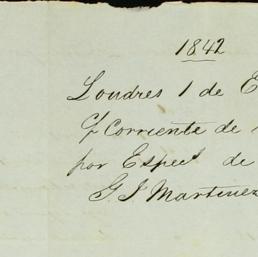 1842
Londres 1 de E
C/ Corriente de
por Espec! de
G. J Martinez